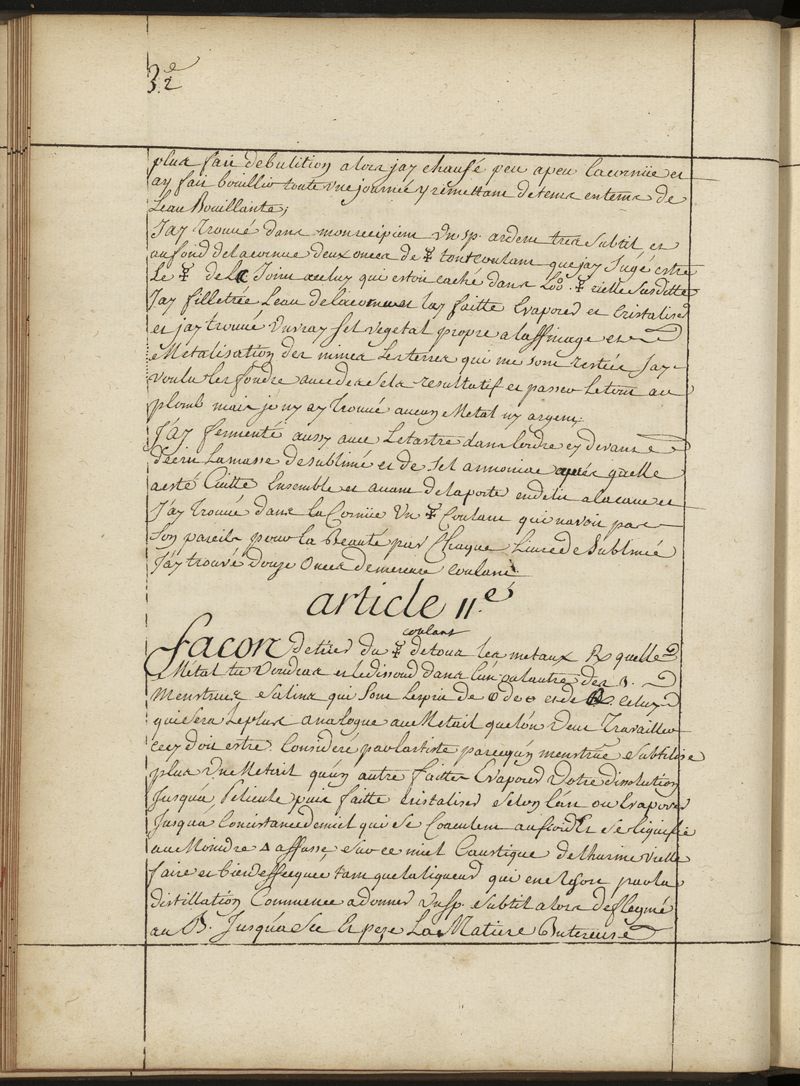 3.2e
plus fait debulition alors jay chaufé peu apeu lacornüe et
ay fait bouillir toute une journée y remettant detems entems de
Leau Bouillante;
J'ay Trouvé dans mon recipient un sp. ardent tres subtil et
aufond delacornue deux onces de ☿ tout coulant que jay Jugé estre
Le ☿ de la ☾ Joint aceluy qui estoit caché dans Loo. ☿ rielle susditte
Jay filletrée Leau delacornue et lay faitte Evaporer et Cristaliser
et jay trouvé un vray sel vegetal propre alaffinage et
Metalisation des mines Les terres qui me sont restée Jay
voulu les fondre avec des sels resultatif et passer letout au
plomb mais je ny ay Trouvé aucun Metal ny argent.
J'ay fermenté aussy avec Letartre dans lordre cy devant
décrit Lamasse desublimé et de sel armoniac aprés quelle
aesté Cuitte Ensemble et avant delaporter endeliu alacave et
J'ay Trouvé dans la Cornüe un ☿ Coulant qui navoit pas
son pareils pour la Beauté par Chaque Livre de sublimé
J'ay trouvé douze Onces demercure Coulant
article 11.e
coulant
facon detirer du ☿ detous les metaux ℞ quelle
Metal tu voudras et le dissoud dans lun oulautre des 3.
Menstrues salins qui sont Lesprit de
quisera Leplus analogue au Metail quelón veut Travailler
cecy doit estre Consideré par lartiste parcequ'un menstrüe subtilise
plus un Metail qu'un autre faittes Evaporer votre dissolution
Jusqu'a Pelicule puis faitte cristaliser selon l'art ou Evaporer
Jusqua Concistance de miel qui se Coagulent aufroid Et se liquifie
au Moindre △ affusse sur ce miel Caustique delhurine vielle
faire et bien effecquee tant que laliqueur qui en ressort par la
distillation Commence a donner un sp. subtil alors deflegmé
au B. Jusqu'a sec Et peze La Matiere Butereuse